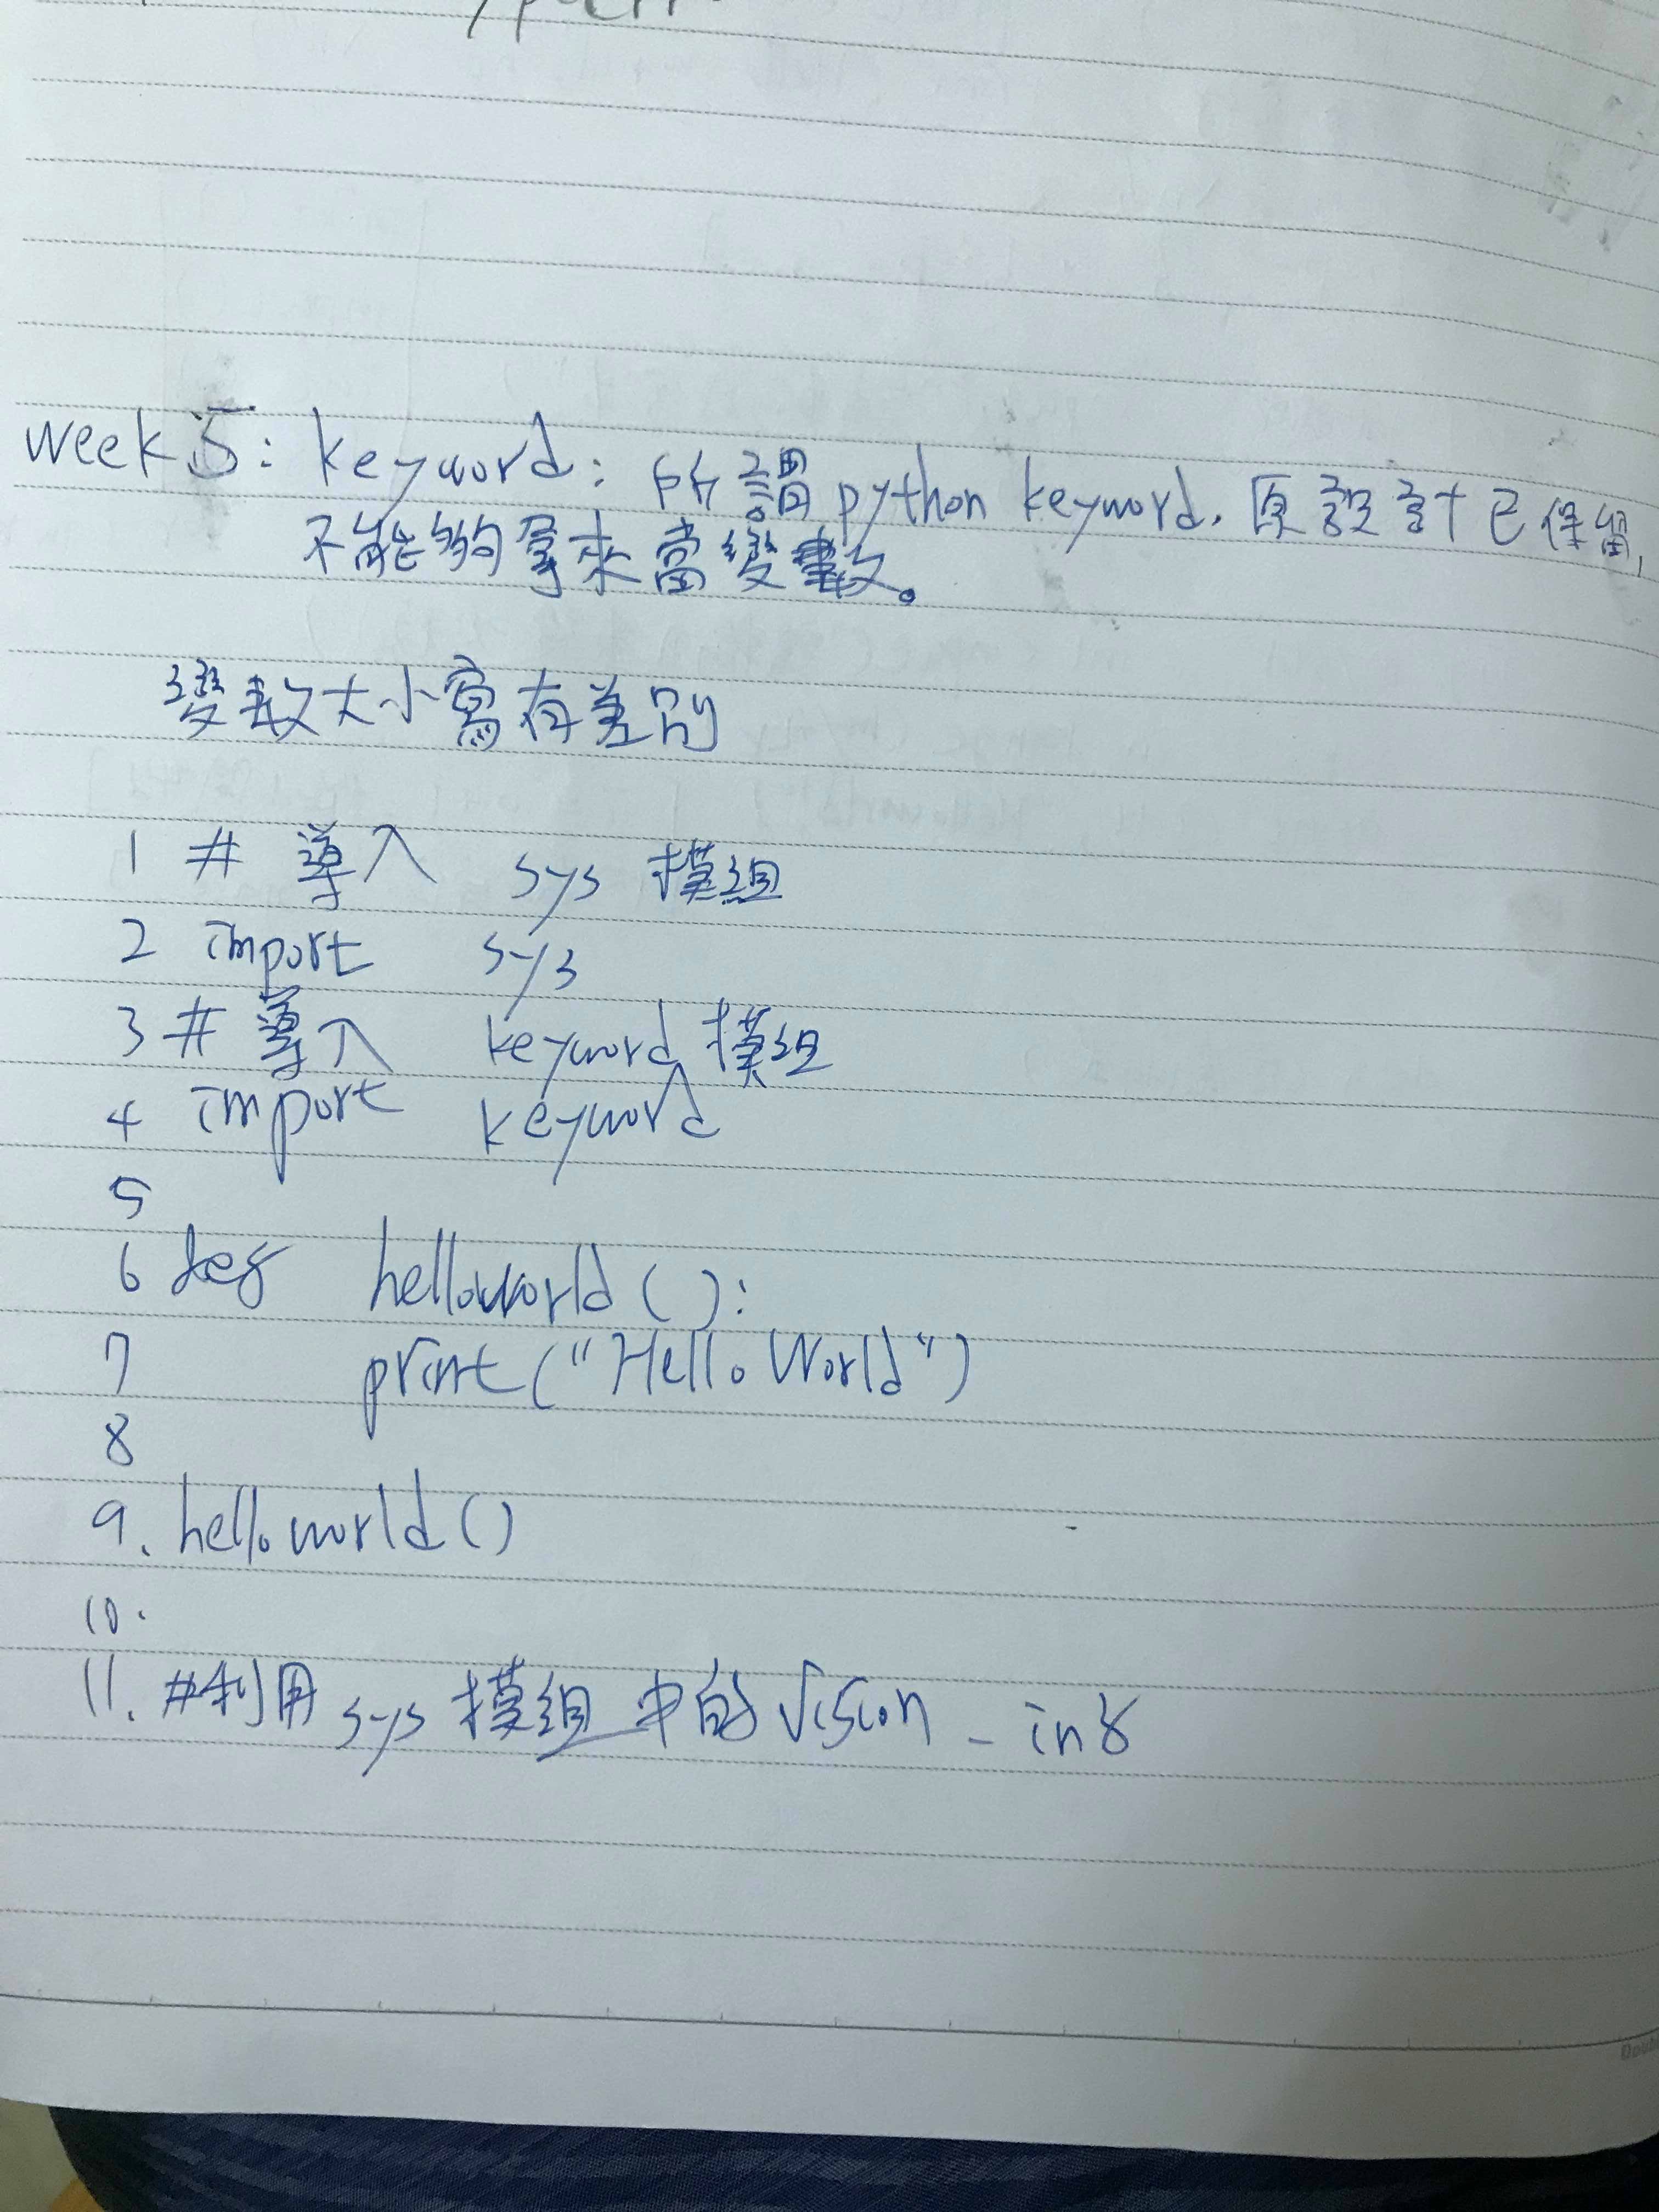 week 5: keyword: 所謂 python keyword. 原設計已保留,
不能夠拿來當變數。
變數大小寫有差別
1 # 導入 sys 模組
2 import sys
3 # 導入 keyword 模組
4 import keyword
5
6 def helloworld():
7 print("Hello World")
8
9. helloworld()
10.
11. #利用 sys 模組中的 vision_inf